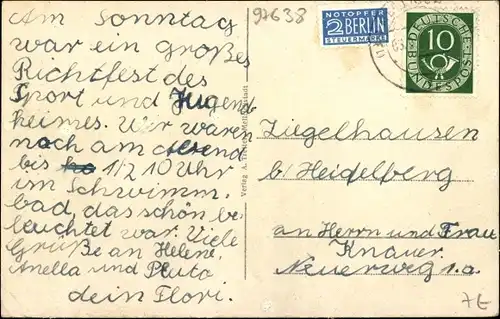 Am Sonntag
war ein großes
Richtfest des
Sport und Jugend
heimes. Wir waren
noch am Abend
bis 1/2 10 Uhr
im Schwimm.
bad, das schön be
leuchtet war. Viele
Grüße an Helene
Anella und Pluto
dein Flori.
97638
NOTOPFER
2 BERLIN
STEUERMARKE
DEUTSCHE
BUNDESPOST
10
Verlag A.
Ziegelhausen
b/ Heidelberg
an Herrn und Frau
Knauer
Neuerweg 1.a.
7E